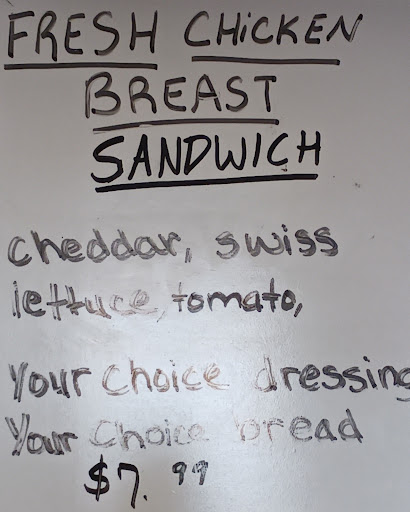 FRESH CHiCKEN
BREAST
SANDWICH
cheddar, swiss
lettuce, tomato,
Your choice dressing
Your Choice bread
$7.99